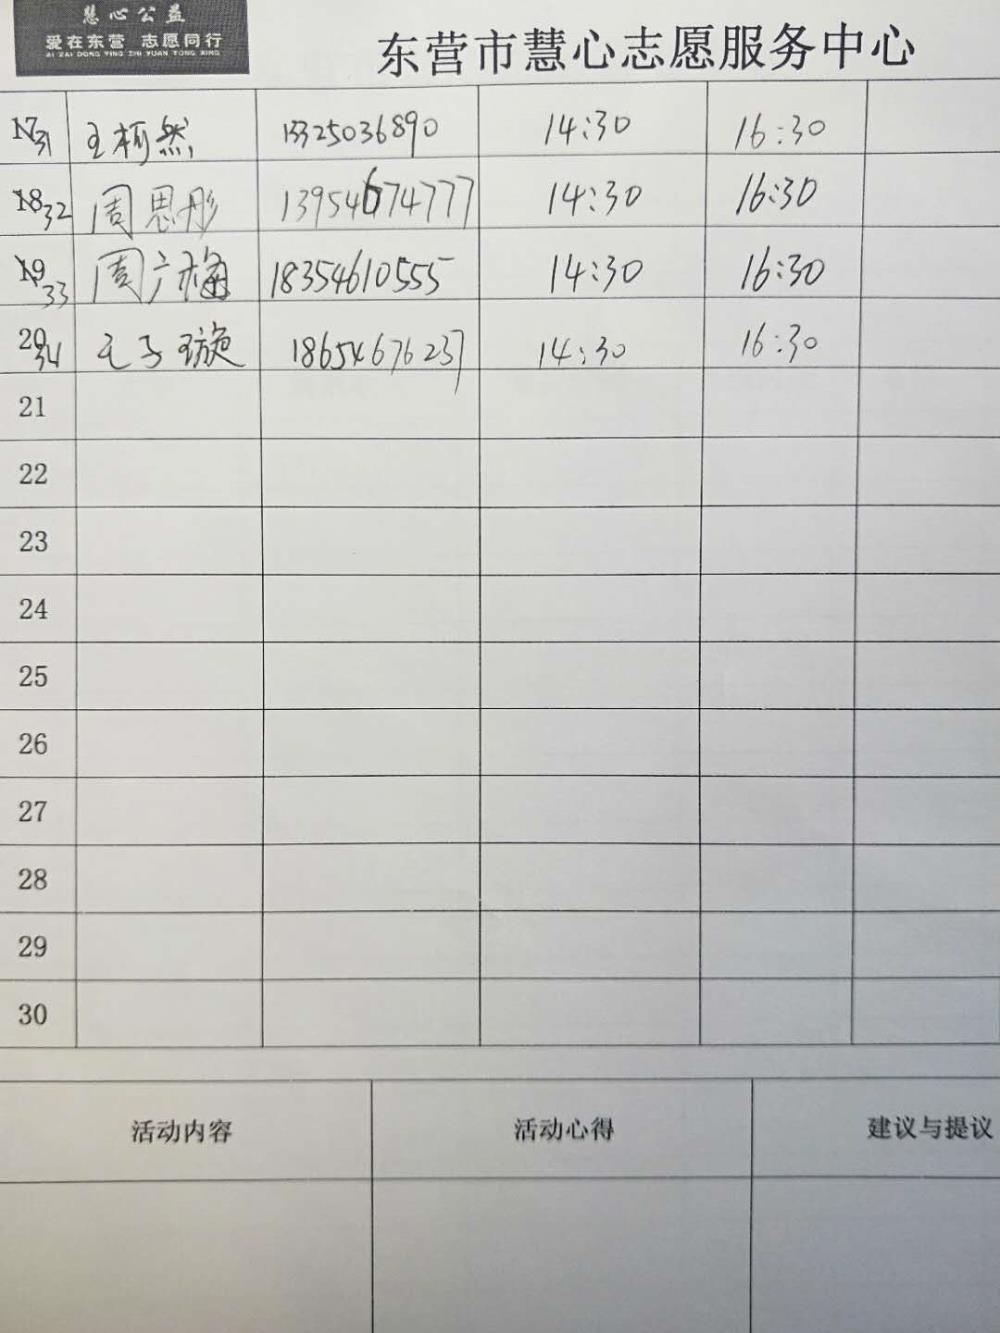 慧心公益
爱在东营 志愿同行
AI ZAI DONG YING ZHI YUAN TONG XING
东营市慧心志愿服务中心
17 31 王柯然 13325036890 14:30 16:30
18 32 周思彤 13954674777 14:30 16:30
19 33 周广梅 18354610555 14:30 16:30
20 34 王子璇 18654676237 14:30 16:30
21
22
23
24
25
26
27
28
29
30
活动内容 活动心得 建议与提议